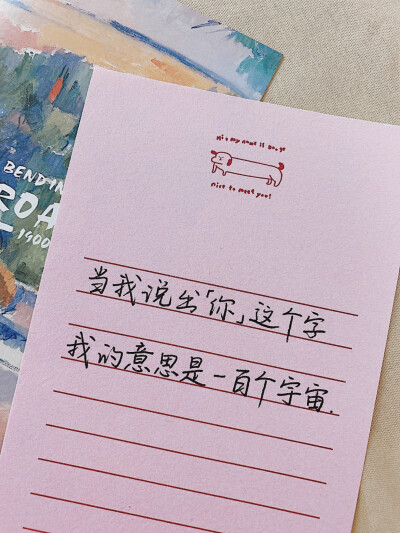 Hi! my name is
nice to meet you!
BENDIN
ROA
1900
当我说出「你」这个字
我的意思是一百个宇宙.